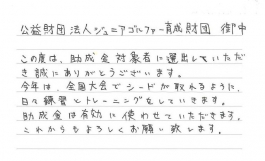 公益財団法人ジュニアゴルファー育成財団 御中
この度は、助成金対象者に選出していただ
き誠にありがとうございます。
今年は、全国大会でシードが取れるように、
日々練習とトレーニングをしていきます。
助成金は有効に使わせていただきます。
これからもよろしくお願い致します。